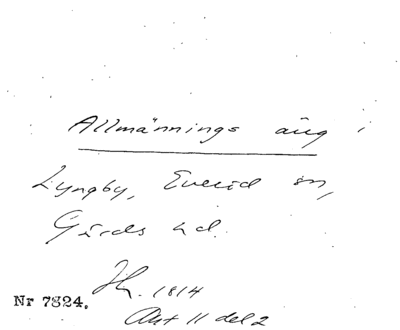 Allmännings äng i
Lyngby, Everöd sn,
Gärds hd.
1814
Nr 7824.
Akt 11 del 2